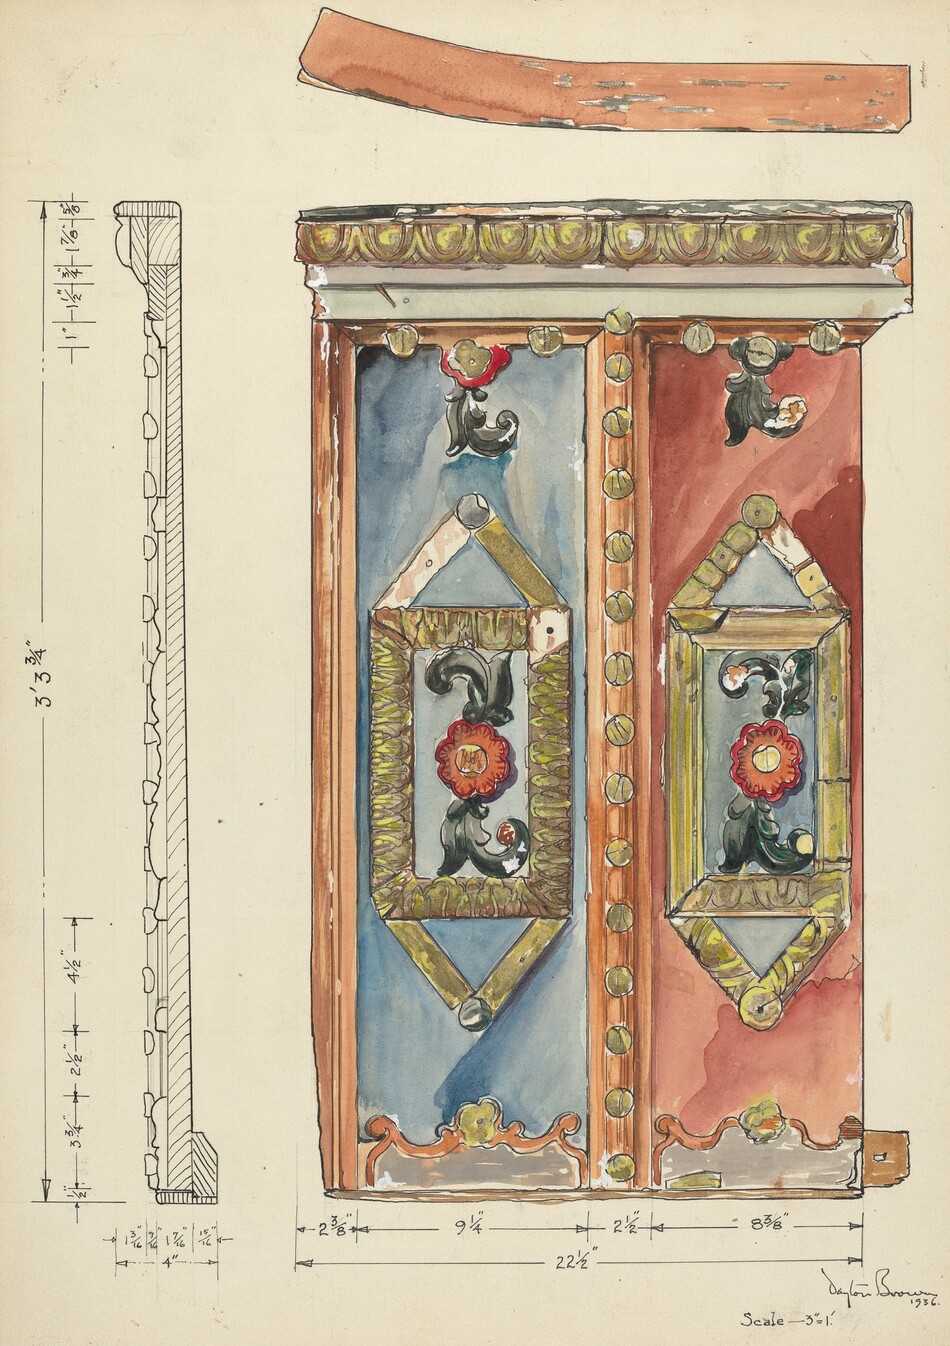 5/8"
1 7/8"
3/4"
1 1/2"
1"
3' 3 3/4"
4 1/2"
2 1/2"
3 3/4"
1/2"
1 3/16"
9/16"
1 7/16"
15/16"
4"
2 3/8"
9 1/4"
2 1/2"
8 3/8"
22 1/2"
Dayton Brown
1936.
Scale — 3" = 1'.